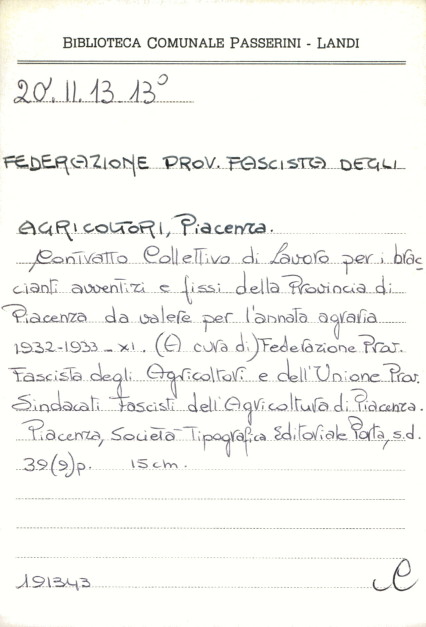 BIBLIOTECA COMUNALE PASSERINI - LANDI
20'. II. 13. 13°
FEDERAZIONE PROV. FASCISTA DEGLI
AGRICOLTORI, Piacenza.
Contratto Collettivo di Lavoro per i brac-
cianti avventizi e fissi della Provincia di
Piacenza da valere per l'annata agraria
1932-1933 - XI. (A cura di) Federazione Prov.
Fascista degli Agricoltori e dell'Unione Prov.
Sindacati Fascisti dell'Agricoltura di Piacenza.
Piacenza, Società Tipografica Editoriale Porta, s.d.
39(9)p. 15 cm.
191343